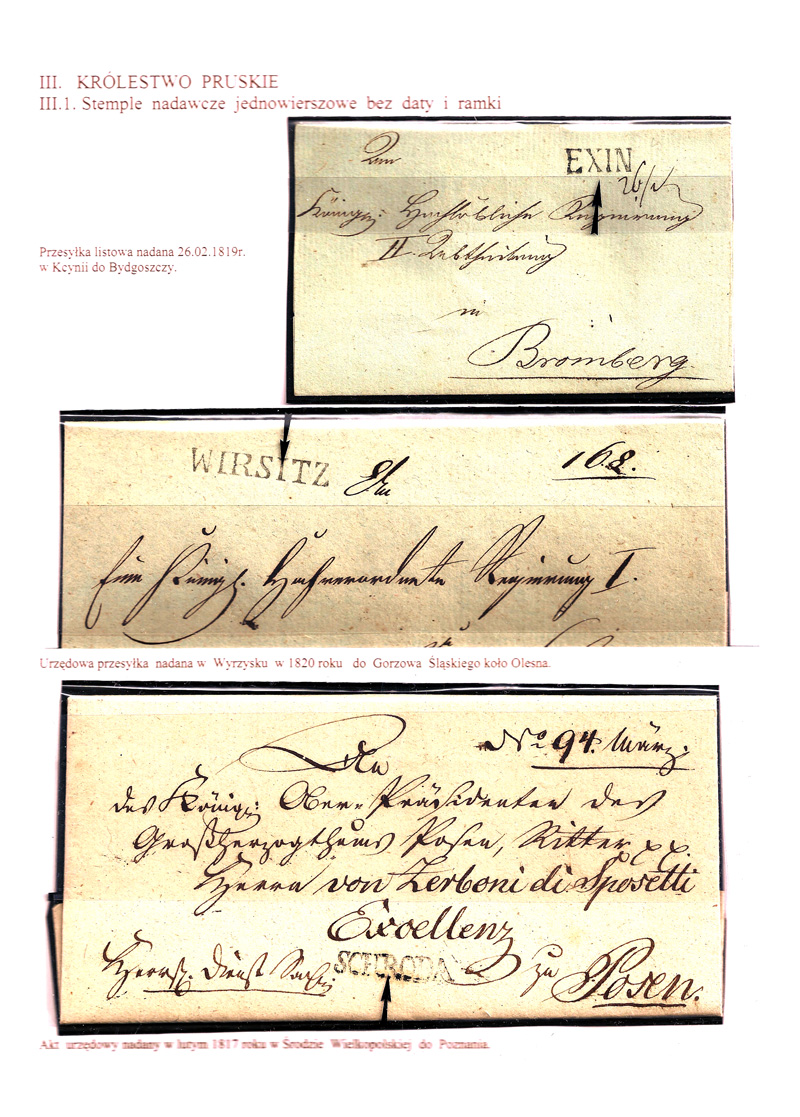 III. KRÓLESTWO PRUSKIE
III.1. Stemple nadawcze jednowierszowe bez daty i ramki
An
EXIN
26/2
Königl: Hochlöbliche Regierung
II. Abtheilung
in
Bromberg
Przesyłka listowa nadana 26.02.1819r.
w Kcynii do Bydgoszczy.
WIRSITZ
An
168.
Eine Königl. Hochverordnete Regierung I.
Urzędowa przesyłka nadana w Wyrzysku w 1820 roku do Gorzowa Śląskiego koło Olesna.
An
No 94. März.
des Königl: Ober-Präsidenten des
Großherzogthums Posen, Ritter xx.
Herrn von Zerboni di Sposetti
Excellenz
SCHRODA
zu
Posen.
Akt urzędowy nadany w lutym 1817 roku w Środzie Wielkopolskiej do Poznania.